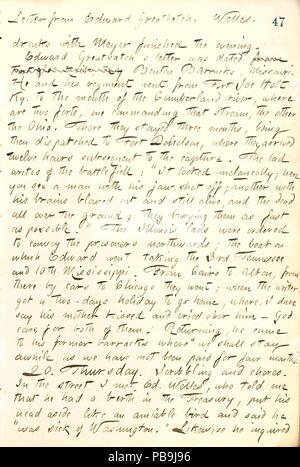 Letter from Edward Greatbatch. Welles.
47
drunks with Meyer finished the evening.
Edward Greatbatch's letter was dated from
Benton Barracks, Missouri.
He and his regiment went from Fort Holt
Ky. to the mouth of the Cumberland river, where
are two forts, one commanding that stream, the other
the Ohio. There they stayed three months, being
then dispatched to Fort Donelson, where they arrived
twelve hours subsequent to the capture. The lad
writes of the battle field: "It looked melancoly; here
you see a man with his jaw shot off; another with
his brains blowed out and still alive, and the dead
all over the ground; they burying them as fast
as possible." The Illinois lads were ordered
to convoy the prisoners northwards; the boat on
which Edward went taking the 3rd Tennessee
and 10th Mississippi. From Cairo to Alton, from
there by cars to Chicago they went; when the writer
got a two-days holiday to go home, where I dare
say his mother kissed and cried over him — God
care for both of them! Returning, he came
to his former barracks where "we shall stay
awhile, as we have not been paid for four months."
20. Thursday. Scribbling and chores.
In the street I met Ed. Welles, who told me
that he had a berth in the Treasury, put his
head aside like an amiable bird and said he
"was sick of Washington." Likewise he inquired
alamy
PB9J96